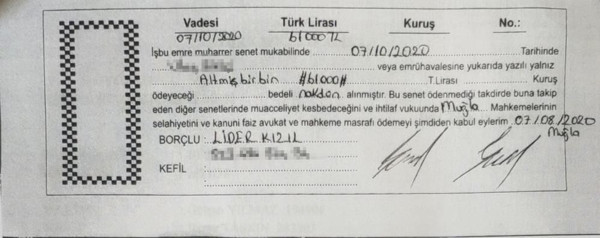 Vadesi Türk Lirası Kuruş No.:
07/10/2020 61000 TL
İşbu emre muharrer senet mukabilinde 07/10/2020 Tarihinde
veya emrühavalesine yukarıda yazılı yalnız
Altmış bir bin #61000# T.Lirası Kuruş
ödeyeceğ bedeli nakden alınmıştır. Bu senet ödenmediği takdirde buna takip
eden diğer senetlerinde muacceliyet kesbedeceğini ve ihtilaf vukuunda Muğla Mahkemelerinin
selahiyetini ve kanuni faiz avukat ve mahkeme masrafı ödemeyi şimdiden kabul eylerim 07/08/2020
Muğla
BORÇLU : LİDER KIZIL
KEFİL